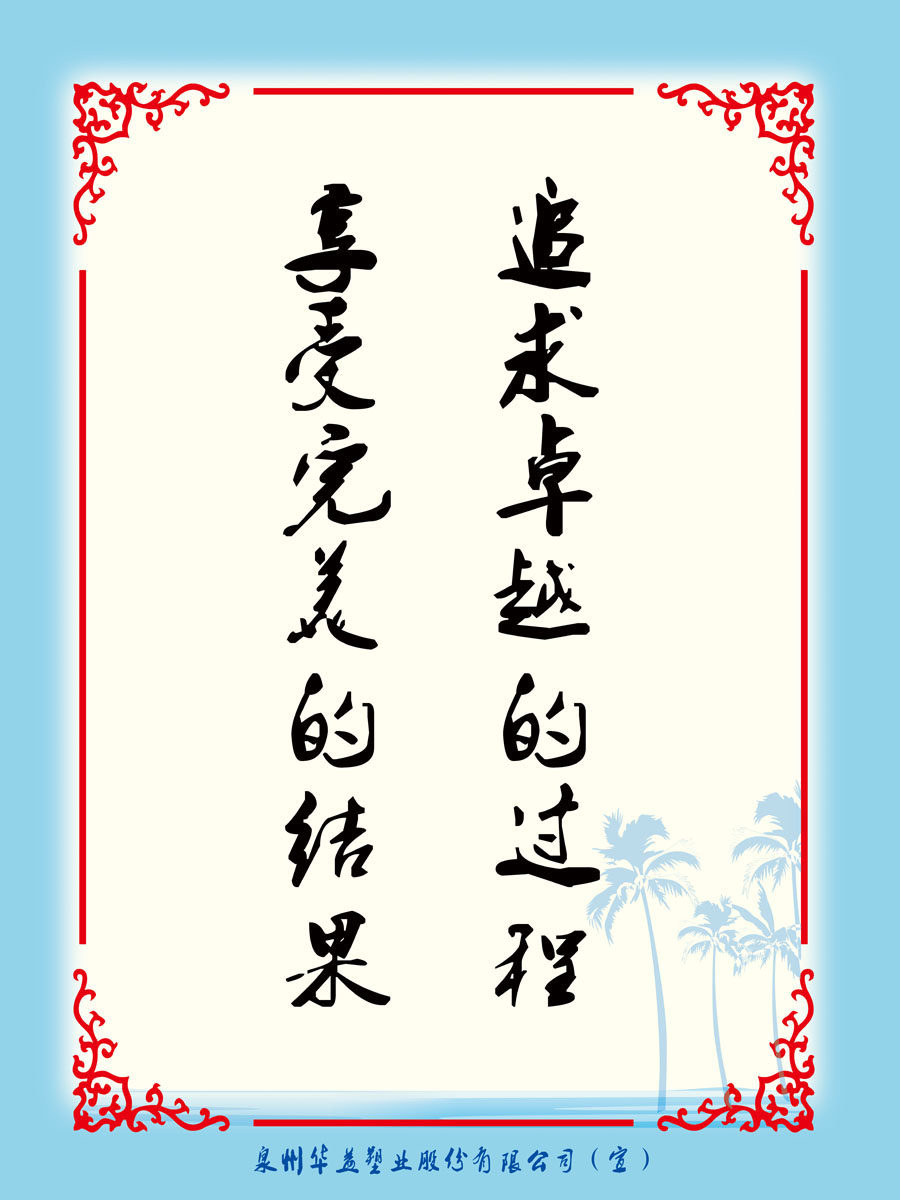 追求卓越的过程
享受完美的结果
泉州华益塑业股份有限公司（宣）